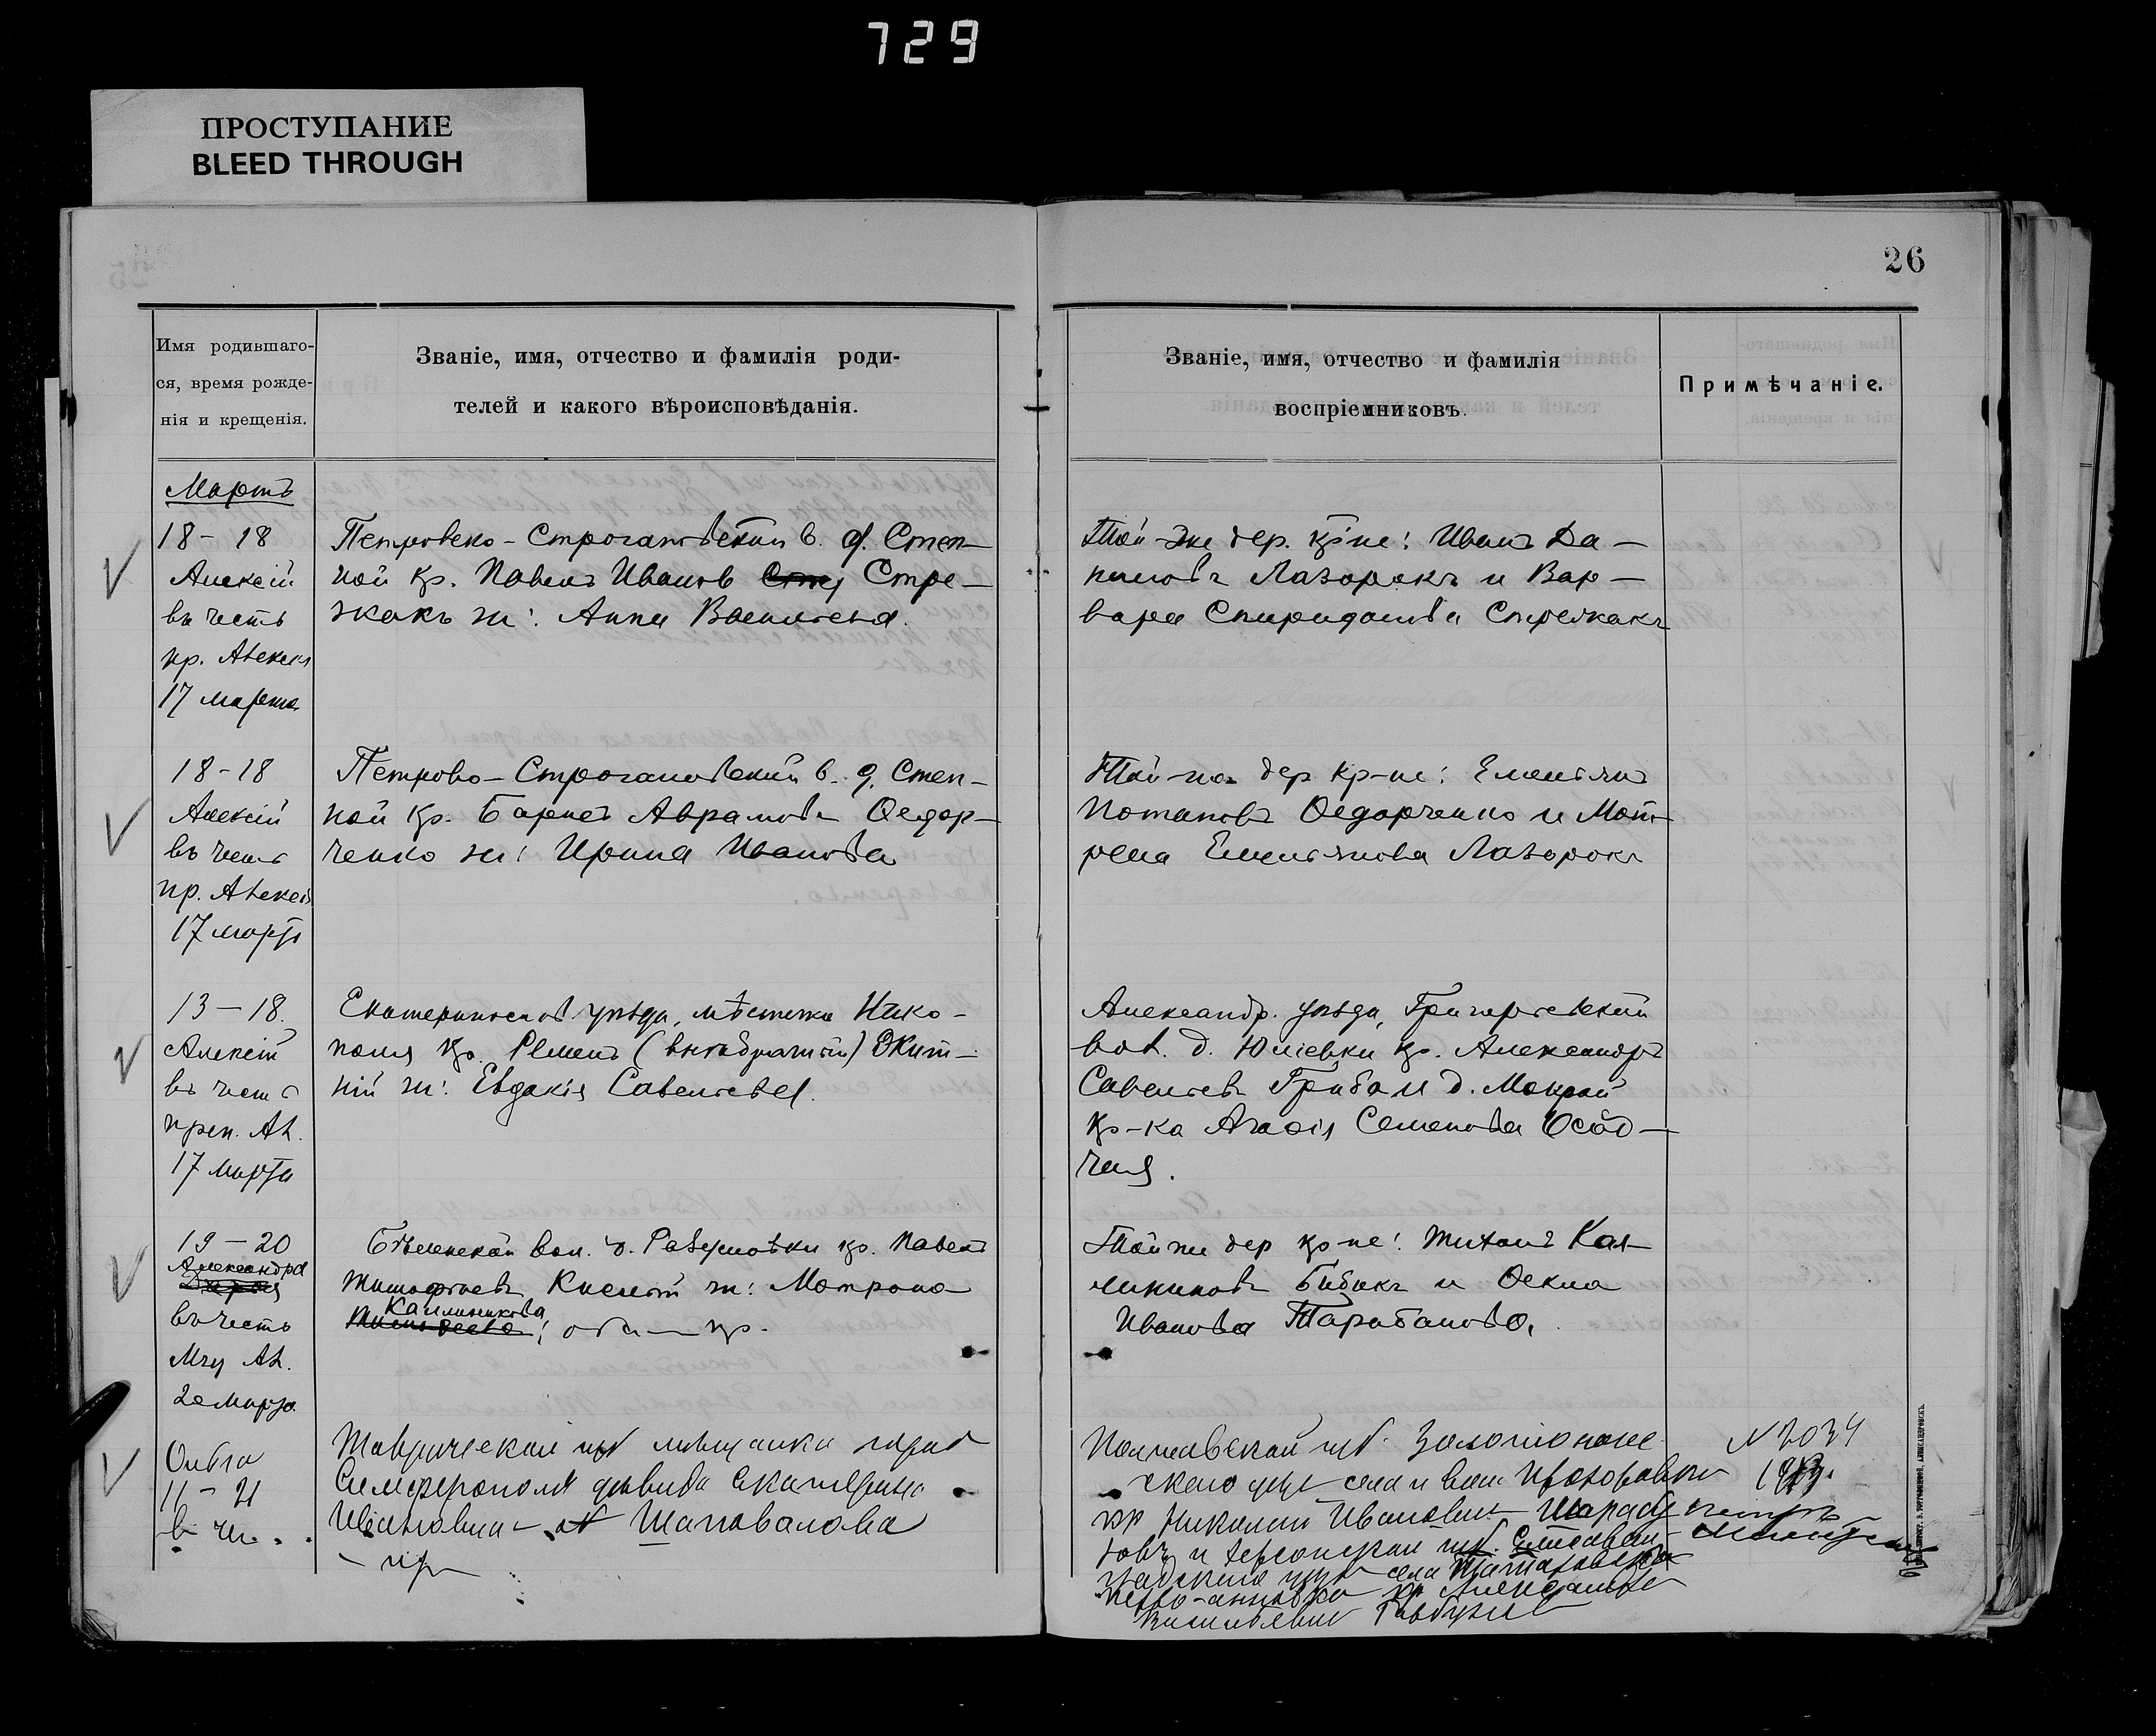 729
ПРОСТУПАНИЕ
BLEED THROUGH
26
Имя родившаго-
ся, время рожде-
нія и крещенія.
Званіе, имя, отчество и фамилія роди-
телей и какого вѣроисповѣданія.
Званіе, имя, отчество и фамилія
воспріемниковъ.
Примѣчаніе.
Мартъ
18 - 18
Алексій
въ честь
пр. Алексія
17 марта
Петровско-Строгановской в. д. Степ-
ной кр. Павелъ Ивановъ Стре-
жакъ ж: Анна Васильева.
Той-же дер. кр-не: Иванъ Да-
ниловъ Лазорокъ и Вар-
вара Спиридонова Стрежакъ
18 - 18
Алексій
въ честь
пр. Алексія
17 марта
Петрово-Строгановской в. д. Степ-
ной кр. Авраамовъ Ѳедор-
ченко ж: Ирина Иванова
Той-же дер кр-не: Емельянъ
Потаповъ Ѳедорченко и Мот-
рена Емельянова Лазорокъ
13 - 18.
Алексій
въ честь
преп. Ал.
17 марта
Екатериносл уѣзда, мѣстечка Нико-
поля кр. Окит-
ній ж: Евдокія Савельева.
Александр. уѣзда, Григорьевской
вол. д. Юліевки кр. Александръ
Савельевъ Гриба и д. Мокрой
кр-ка Агафія Семенова Осад-
чая.
19 - 20
Александра
въ честь
Мчц Ал.
20 марта
Бѣленской вол. д. Разумовки кр. Павелъ
Тимофеевъ Кислый ж: Матрона
Каллиникова; оба кр.
Той же дер кр-не: Тихонъ Кал-
линиковъ Бибикъ и Ѳекла
Иванова Тарабанова.
Ольга
11 - 21
в чи.
Таврической губ мѣщанка города
Симферополя дѣвица Екатерина
Ивановна Шаповалова
пр
Полтавской губ. Золотонош
скаго уѣз села и вол Прохоровки
кр Николай Ивановичъ
и Херсонской губ. Елисавет-
градскаго уѣзда села
кр Александра
Васильевна
№ 3034